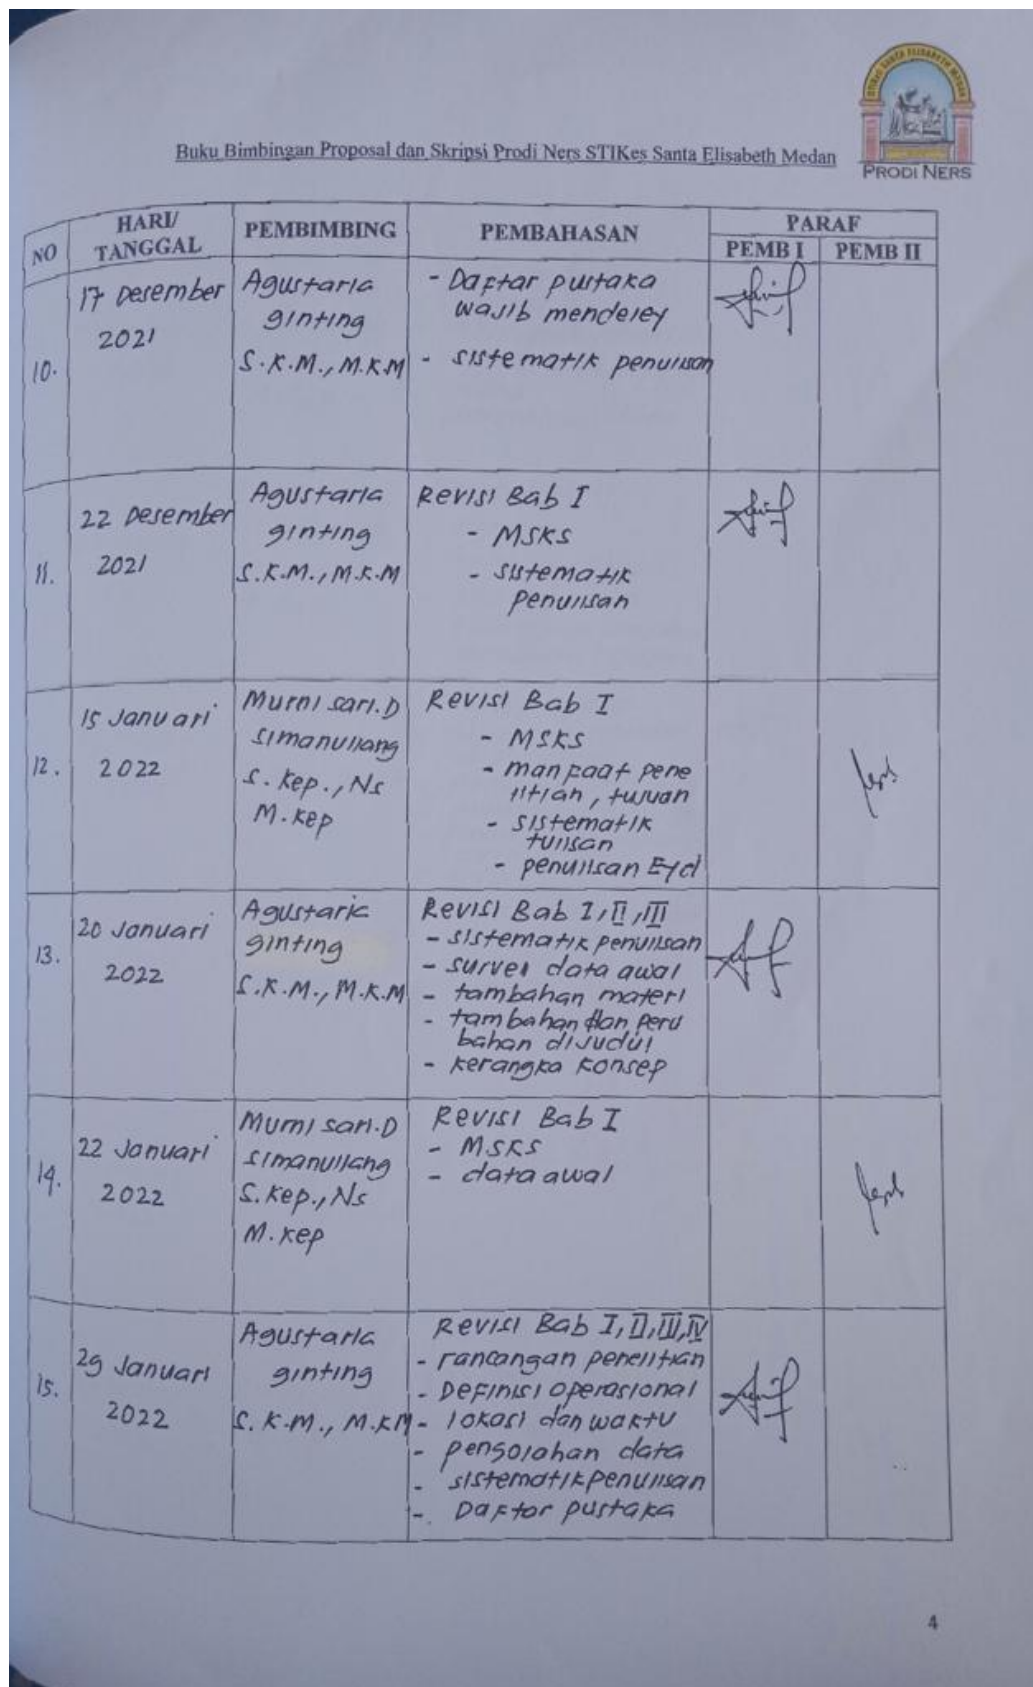 STIKES SANTA ELISABETH MEDAN
PRODI NERS
Buku Bimbingan Proposal dan Skripsi Prodi Ners STIKes Santa Elisabeth Medan
NO
HARI/
TANGGAL
PEMBIMBING
PEMBAHASAN
PARAF
PEMB I
PEMB II
10.
17 Desember
2021
Agustaria
ginting
S.K.M., M.K.M
- Daftar pustaka
wajib mendeley
- sistematik penulisan
11.
22 Desember
2021
Agustaria
ginting
S.K.M., M.K.M
Revisi Bab I
- MSKS
- sistematik
penulisan
12.
15 Januari
2022
Murni sari.D
simanullang
S. Kep., Ns
M. Kep
Revisi Bab I
- MSKS
- manfaat pene
litian, tujuan
- sistematik
tulisan
- penulisan Eyd
13.
20 Januari
2022
Agustaria
ginting
S.K.M., M.K.M
Revisi Bab I, II, III
- sistematik penulisan
- survei data awal
- tambahan materi
- tambahan dan peru
bahan dijudul
- kerangka konsep
14.
22 Januari
2022
Murni sari.D
simanullang
S. Kep., Ns
M. Kep
Revisi Bab I
- MSKS
- data awal
15.
29 Januari
2022
Agustaria
ginting
S. K.M., M.K.M
Revisi Bab I, II, III, IV
- rancangan penelitian
- Definisi operasional
- lokasi dan waktu
- pengolahan data
- sistematik penulisan
- Daftar pustaka
4